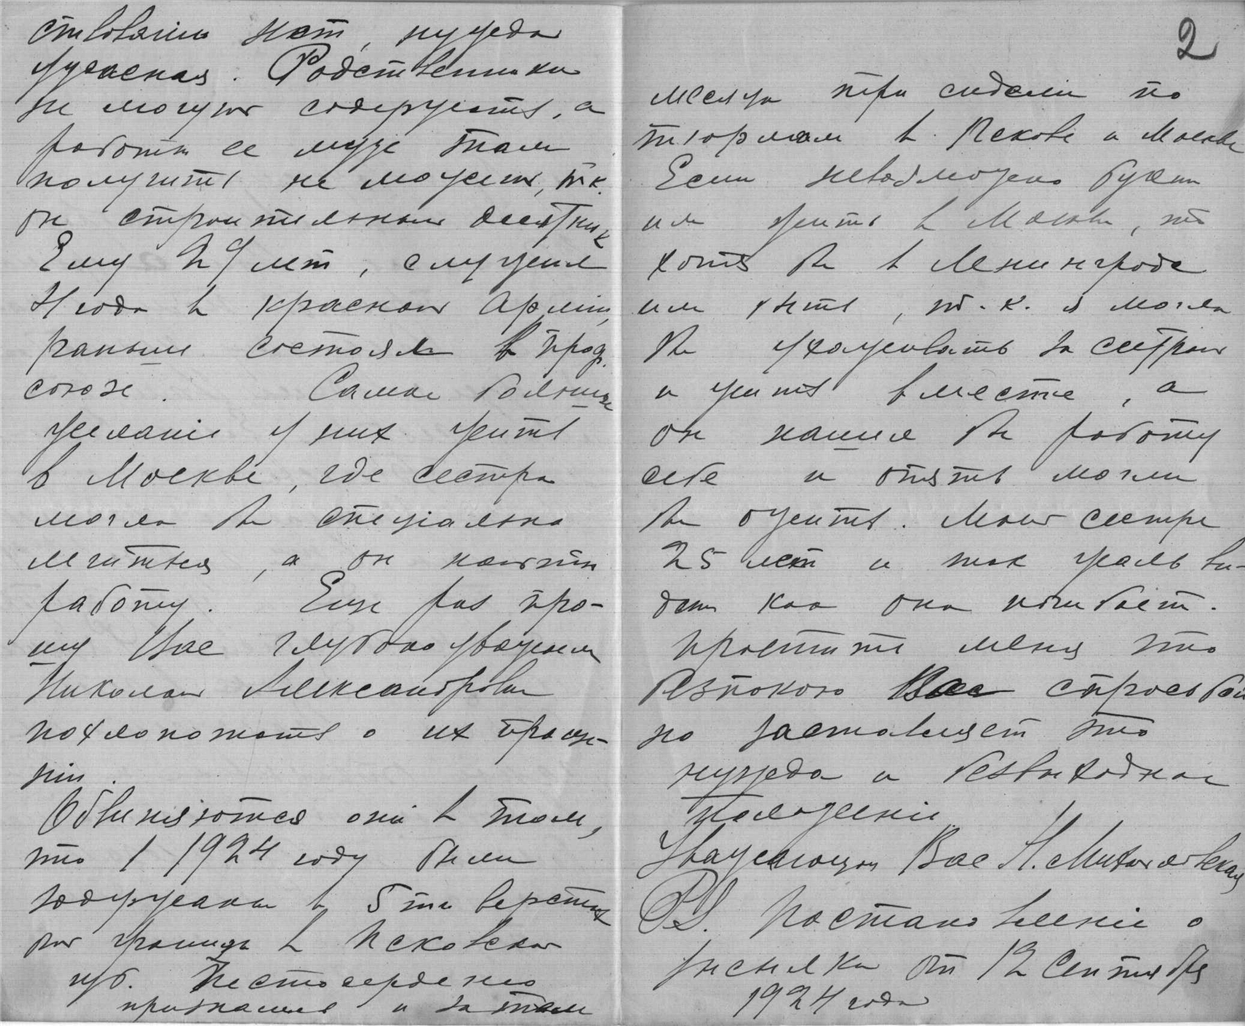 ствованию нет, нужда
ужасная. Родственники
не могут содержать, а
работы ее муж там
получить не может, т.к.
он строительный десятник
Ему 29 лет, служил
4 года в красной Армии,
раньше состоял в проф.
союзе. Самое большое
желание у них жить
в Москве, где сестра
могла бы специально
лечиться, а он найти
работу. Еще раз про-
шу Вас глубокоуважаемый
Николай Александрович
похлопотать о их проще-
нии.
Обвиняются они в том,
что в 1924 году были
задержаны в 5ти верстах
от границы в Псковской
губ. Чистосердечно
признались и за там
2
месяца три сидели по
тюрьмам в Пскове и Москве
Если невозможно будет
им жить в Москве, то
хотя бы в Ленинграде
им жить, т.к. я могла
бы ухаживать за сестрой
и жить вместе, а
он нашел бы работу
себе и опять могли
бы ожить. Моей сестре
25 лет и так жаль ви-
деть как она погибает.
Простите меня что
безпокою Вас с просьбой
но заставляет это
нужда и безвыходное
положение
Уважающая Вас Н.
PS. Постановление о
высылке от 12 Сентября
1924 года